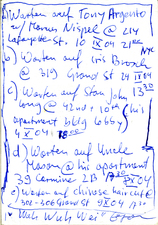 a) Warten auf Tony Argento
w/ Marcus Nispel @ 214
Lafayette St. 10 IX 04 21:00
NYC
b) Warten auf Iris Brosch
@ 319 Grand St 24 IX 04
c) Warten auf Stan John 13:30
Long @ 42nd + 10th (his
apartment bldg lobby)
4 X 04 18:00
d) Warten auf Uncle
Mason @ his apartment
39 Carmine 2B 17:30 X 04
e) Warten auf chinese haircut
302-306 Grand St 9 X 04 17:30
Wuh Wuh Wei